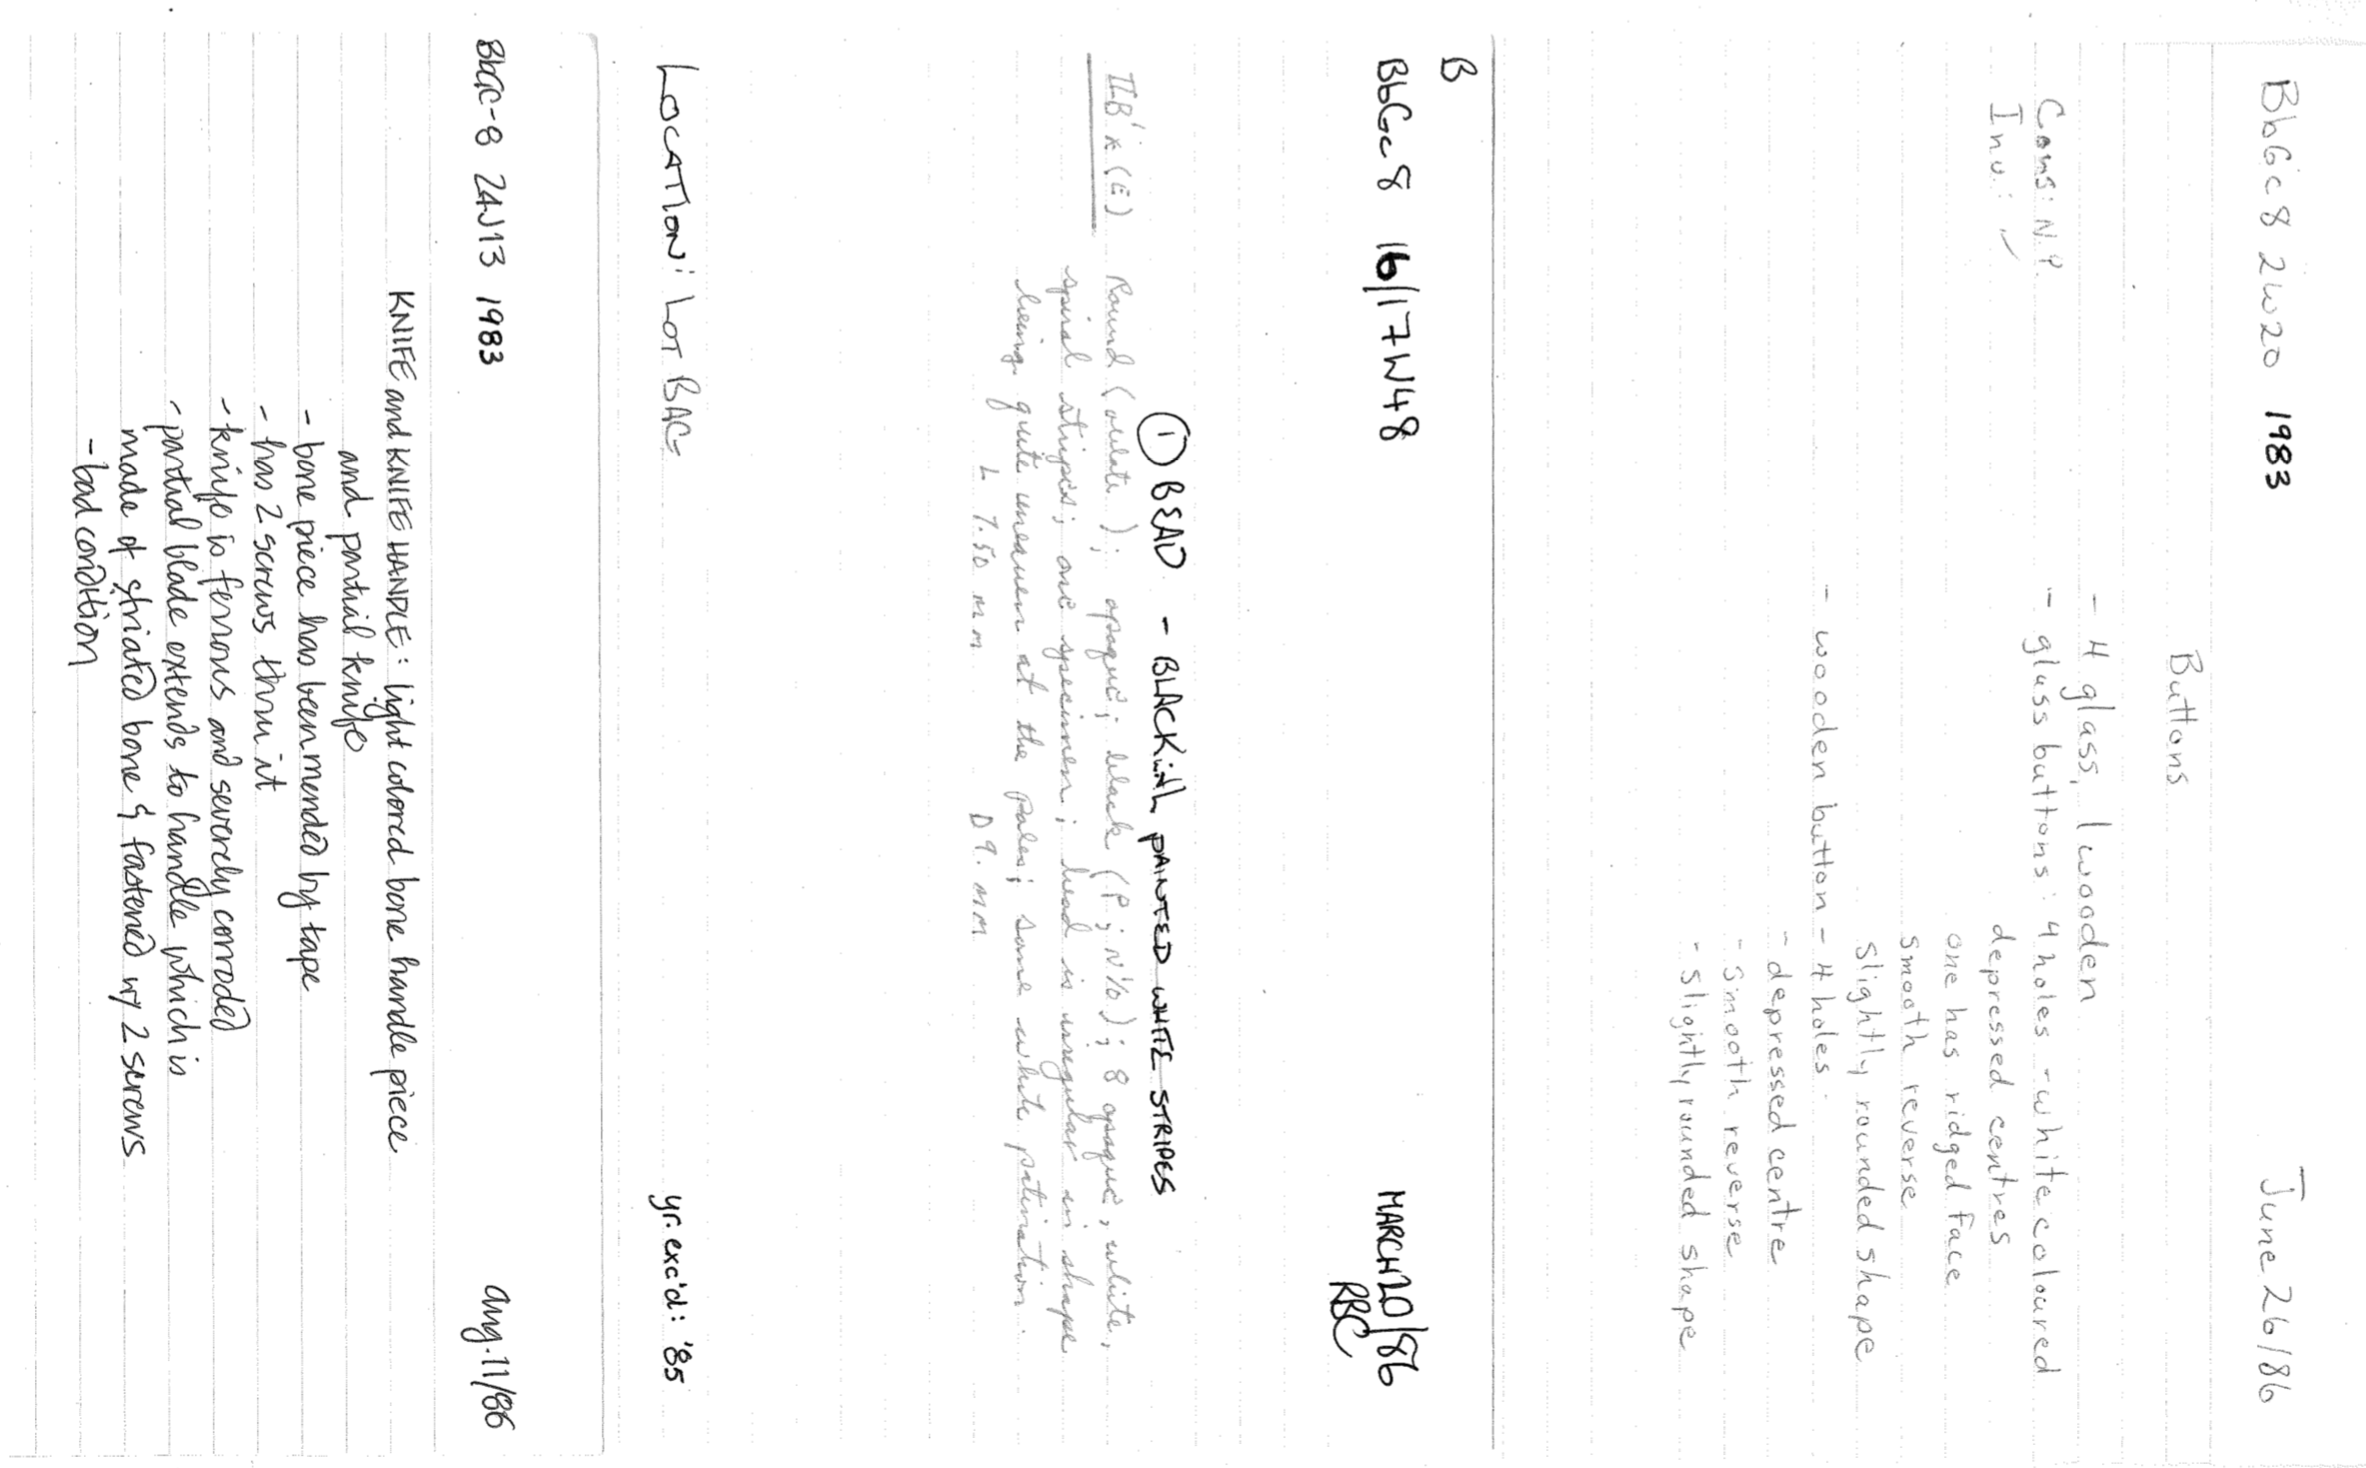 BbGc 8 2W20 1983 June 26/86
Cons: N.P.
Inv.: ✓
Buttons
- 4 glass, 1 wooden
- glass buttons: 4 holes - white coloured
depressed centres
one has ridged face
smooth reverse
slightly rounded shape
- wooden button - 4 holes.
- depressed centre
- smooth reverse
- slightly rounded shape
B
BbGc 8 16/17W48 MARCH 20/86
RBC
① BEAD - BLACK WITH PAINTED WHITE STRIPES
IIB'k (E) Round (oulate); opaque; black (P; N 1/0); 8 opaque, white,
spiral stripes; one specimen; bead is irregular in shape
being quite uneven at the poles; some white patination.
L 7.50 mm D 9. mm
LOCATION: LOT BAG yr. exc'd: '85
BbGc-8 24J13 1983 Aug. 11/86
KNIFE and KNIFE HANDLE: light colored bone handle piece
and partial knife
- bone piece has been mended by tape
- has 2 screws thru it
- knife is ferrous and severely corroded
- partial blade extends to handle which is
made of striated bone & fastened w/ 2 screws
- bad condition